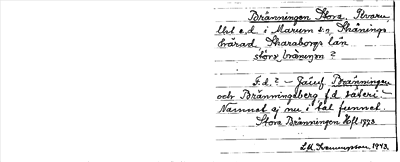 Bränningen Stora, Kvarn,
lht e.d. i Marum sn, Skånings
härad, Skaraborgs län
störa bräningen ?
F.d. ? – Jämf. Bränningen
och Bränningsberg f.d. säteri –
Namnet ej nu i tal funnet.
Stora Bränningen Hfl 1973
1943.